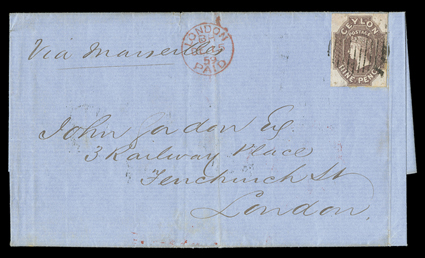 Via Marseilles
LONDON
59
PAID
CEYLON
POSTAGE
NINE PENCE
John Gordon Esq
3 Railway Place
Fenchurch St
London.